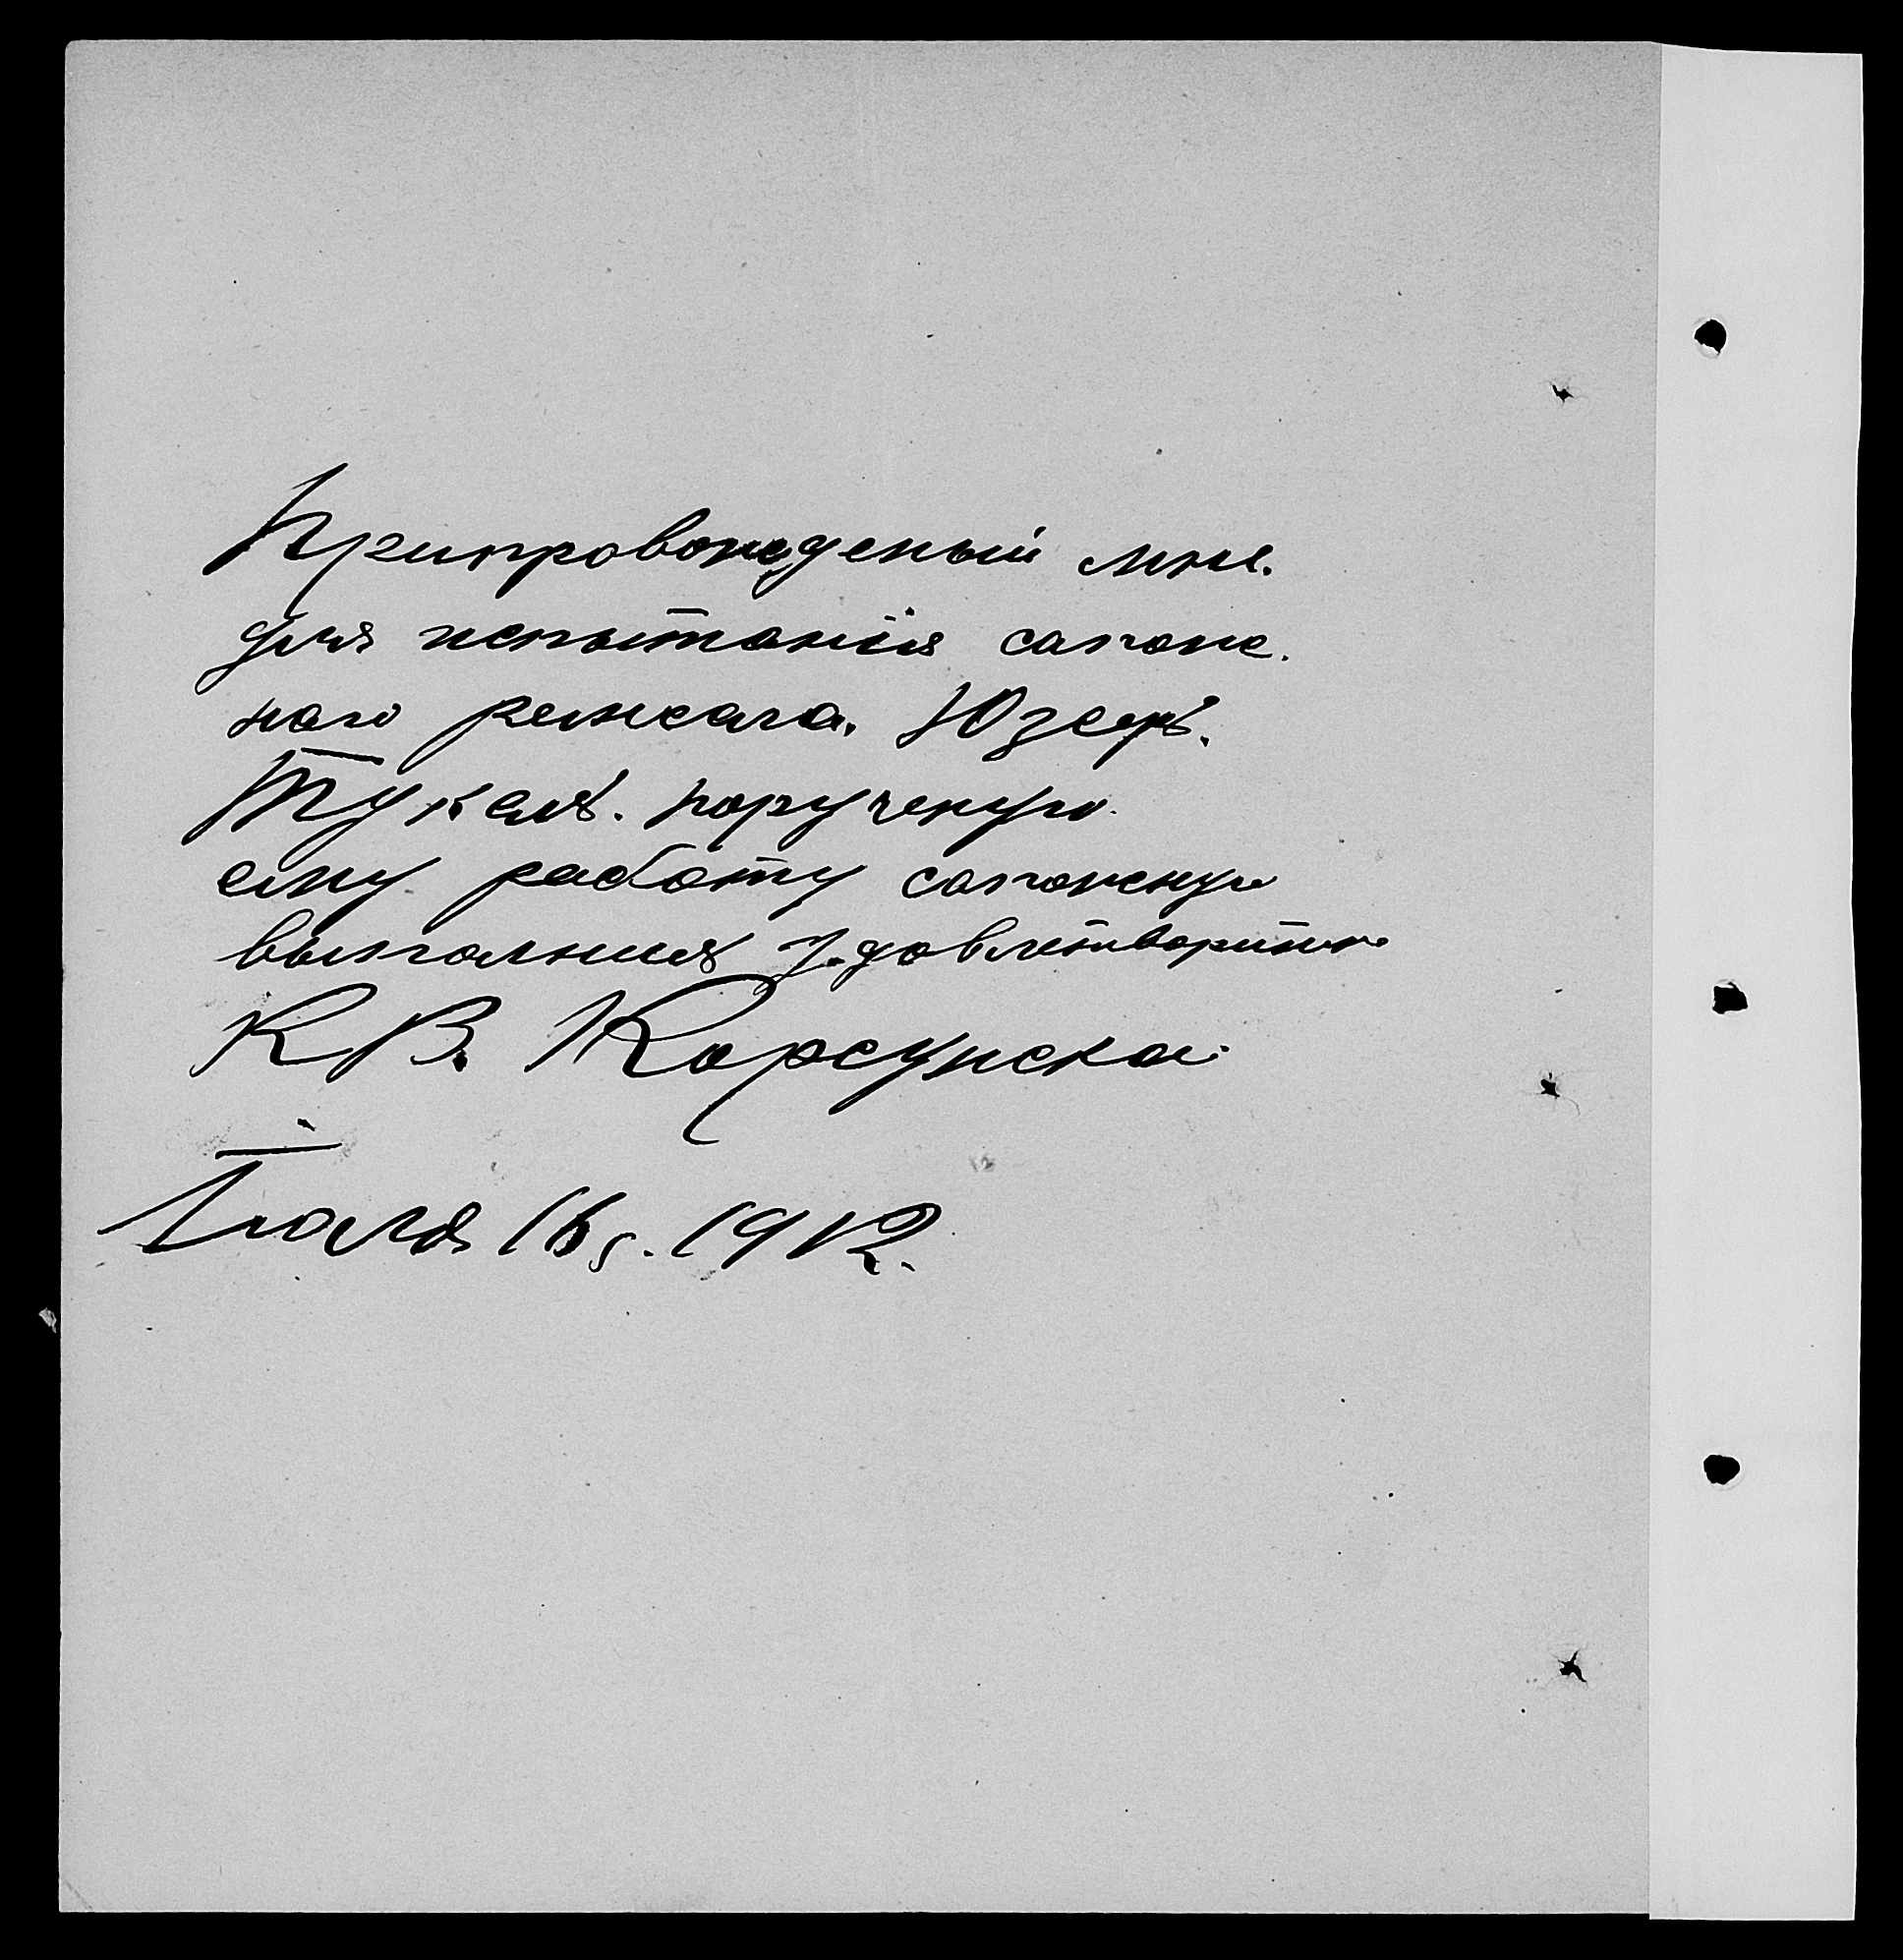 Припровожденый мне.
для испытания сапож.
наго ремесла. Юзефъ.
Тукалъ. порученую
ему работу сапожную
выполнилъ удовлетворительно
К В. Корсунска
Іюля 16 г. 1912.